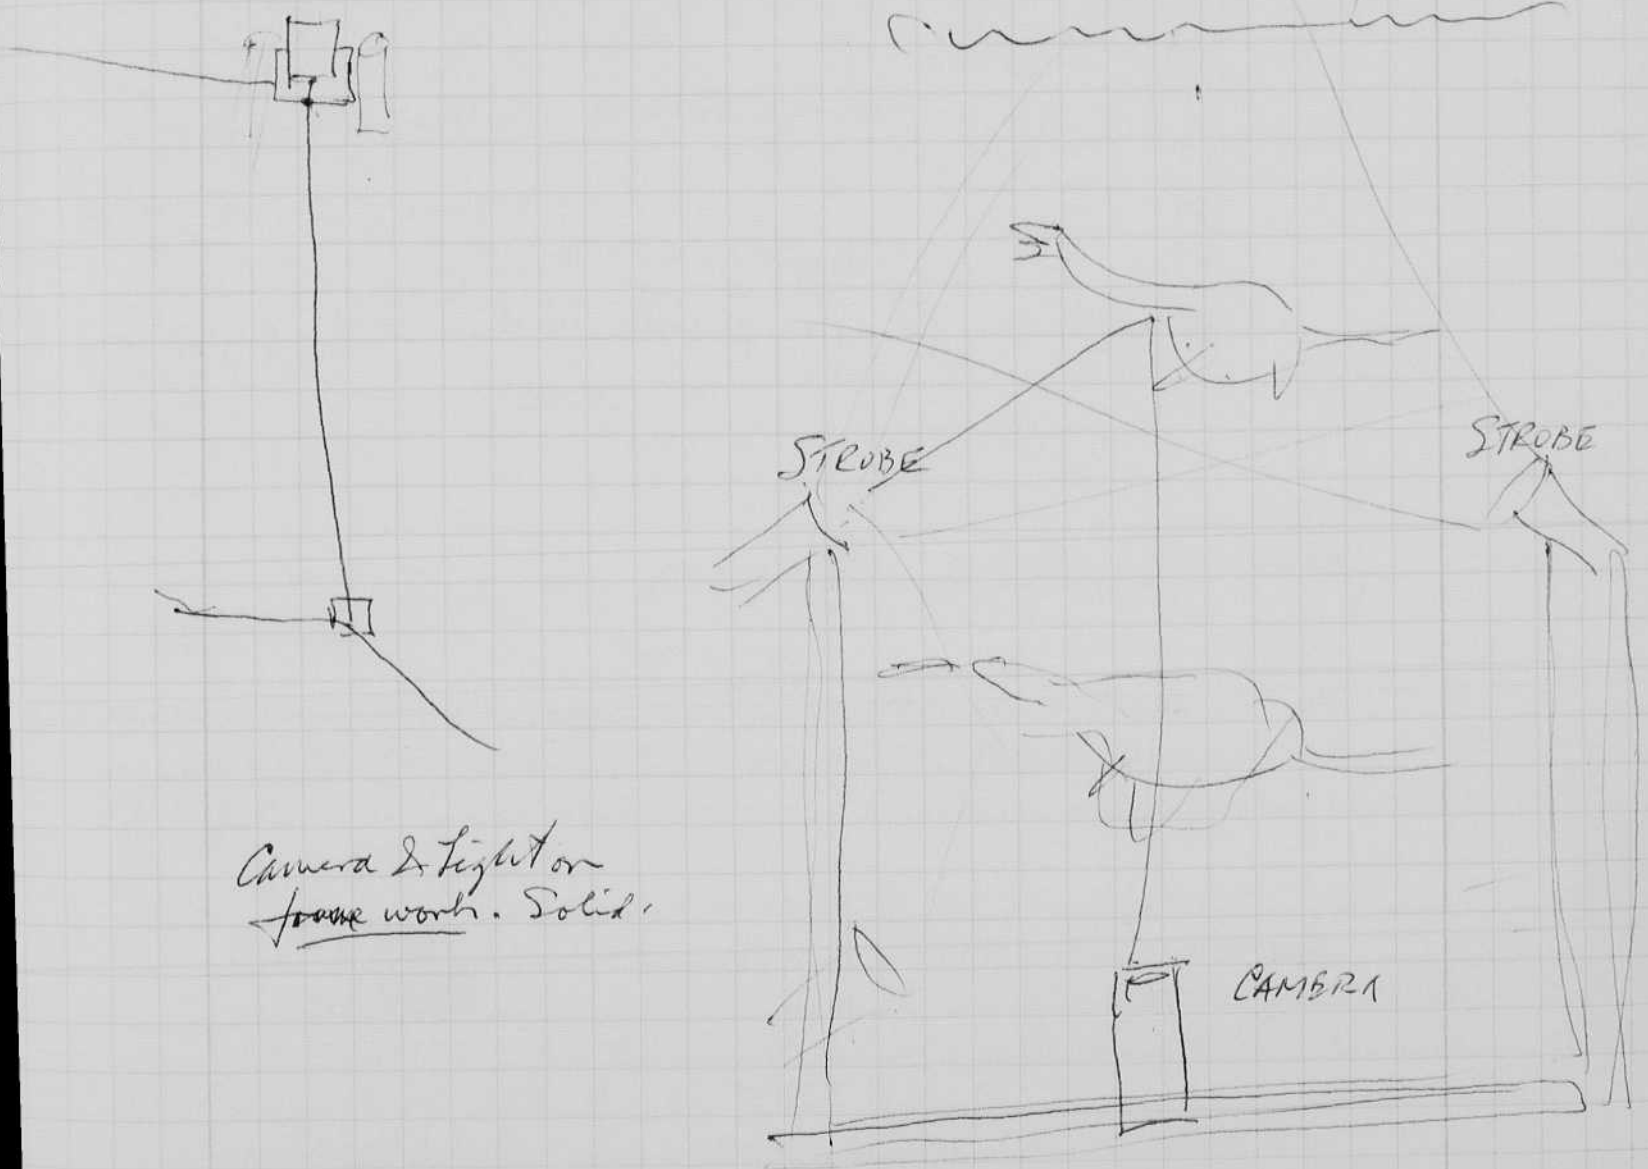 STROBE
STROBE
Camera & Light on
frame work. Solid.
CAMERA